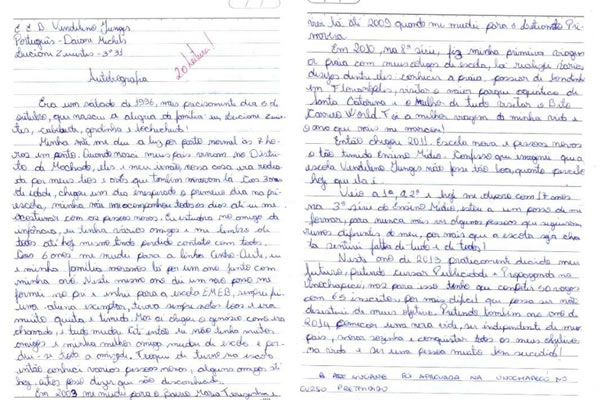 E. E. B. Vendelino Junges
Português - Daiani Michels
Luciani Zimistes - 3ª 31
Autobiografia
Era um sábado de 1996, mais precisamente dia 5 de
outubro, que nasceu a alegria da família: eu, Luciani
cabeluda, gordinha e bochechuda!
Minha mãe me deu a luz por parto normal às 7 ho-
ras em ponto. Quando nasci meus pais moravam no Distri-
to do Machado, eles e meu irmão, nossa casa era rodea-
da por meus tios e avós que também moravam lá. Com 3 anos
de idade, chegou um dia inesperado o primeiro dia na pré-
escola, minha mãe me acompanhou todos os dias até eu me
acostumar com as pessoas novas. Eu estudava no amigo da
infância, eu tinha vários amigos e me lembro de
todos até hoje mesmo tendo perdido contato com todos.
Aos 6 anos me mudei para a Linha Centro-Oeste, eu
e minha família moramos lá por um ano junto com
minha avó. Neste mesmo ano de um novo passo me
formei no pré e entrei para a escola EMEB, sempre fui
uma aluna exemplar, tirava sempre notas boas e era
muito quieta e tímida. Mas aí chegou
chamado e tudo mudou. Até então eu não tinha muitos
amigos e minha melhor amiga mudou de escola e per-
deu-se toda a amizade. Troquei de turno na escola
então conheci várias pessoas novas, alguns amigos até
hoje, outros posso dizer que são desconhecidos.
Em 2003 me mudei para o Bairro Maria Terezinha e
morei lá até 2009 quando me mudei para o Loteamento Pri-
mavera.
Em 2010, na 8ª série, fiz minha primeira viagem
a praia com meus colegas de escola, lá realizei vários
desejos dentre eles conhecer a praia, passear de bondinho
em Florianópolis, visitar o maior parque aquático de
Santa Catarina e o melhor de tudo visitar o Beto
Carrero World. Foi a melhor viagem da minha vida e
o ano que mais me marcou!
Então chegou 2011. Escola nova e pessoas novas
e o tão temido Ensino Médio. Confesso que imaginei que a
escola Vendelino Junges não fosse tão boa, quanto percebo
hoje que ela é.
Veio a 1ª, a 2ª e hoje me deparo com 17 anos
na 3ª série do Ensino Médio, estou a um passo de me
formar, para nunca mais ver algumas pessoas que seguiram
rumos diferentes do meu, por mais que a escola seja chata
sentirei falta de tudo e de todos!
Neste ano de 2013 praticamente decidi meu
futuro, pretendo cursar Publicidade e Propaganda na
Unochapecó, mas para isso tenho que competir 50 vagas
com 65 inscritos, por mais difícil que possa ser não
desistirei de meus objetivos. Pretendo também no ano de
2014 começar uma nova vida, ser independente de meus
pais, morar sozinha e conquistar todos os meus objetivos
na vida e ser uma pessoa muito bem sucedida!
APROVADA NA UNOCHAPECÓ NO
CURSO PRETENDIDO